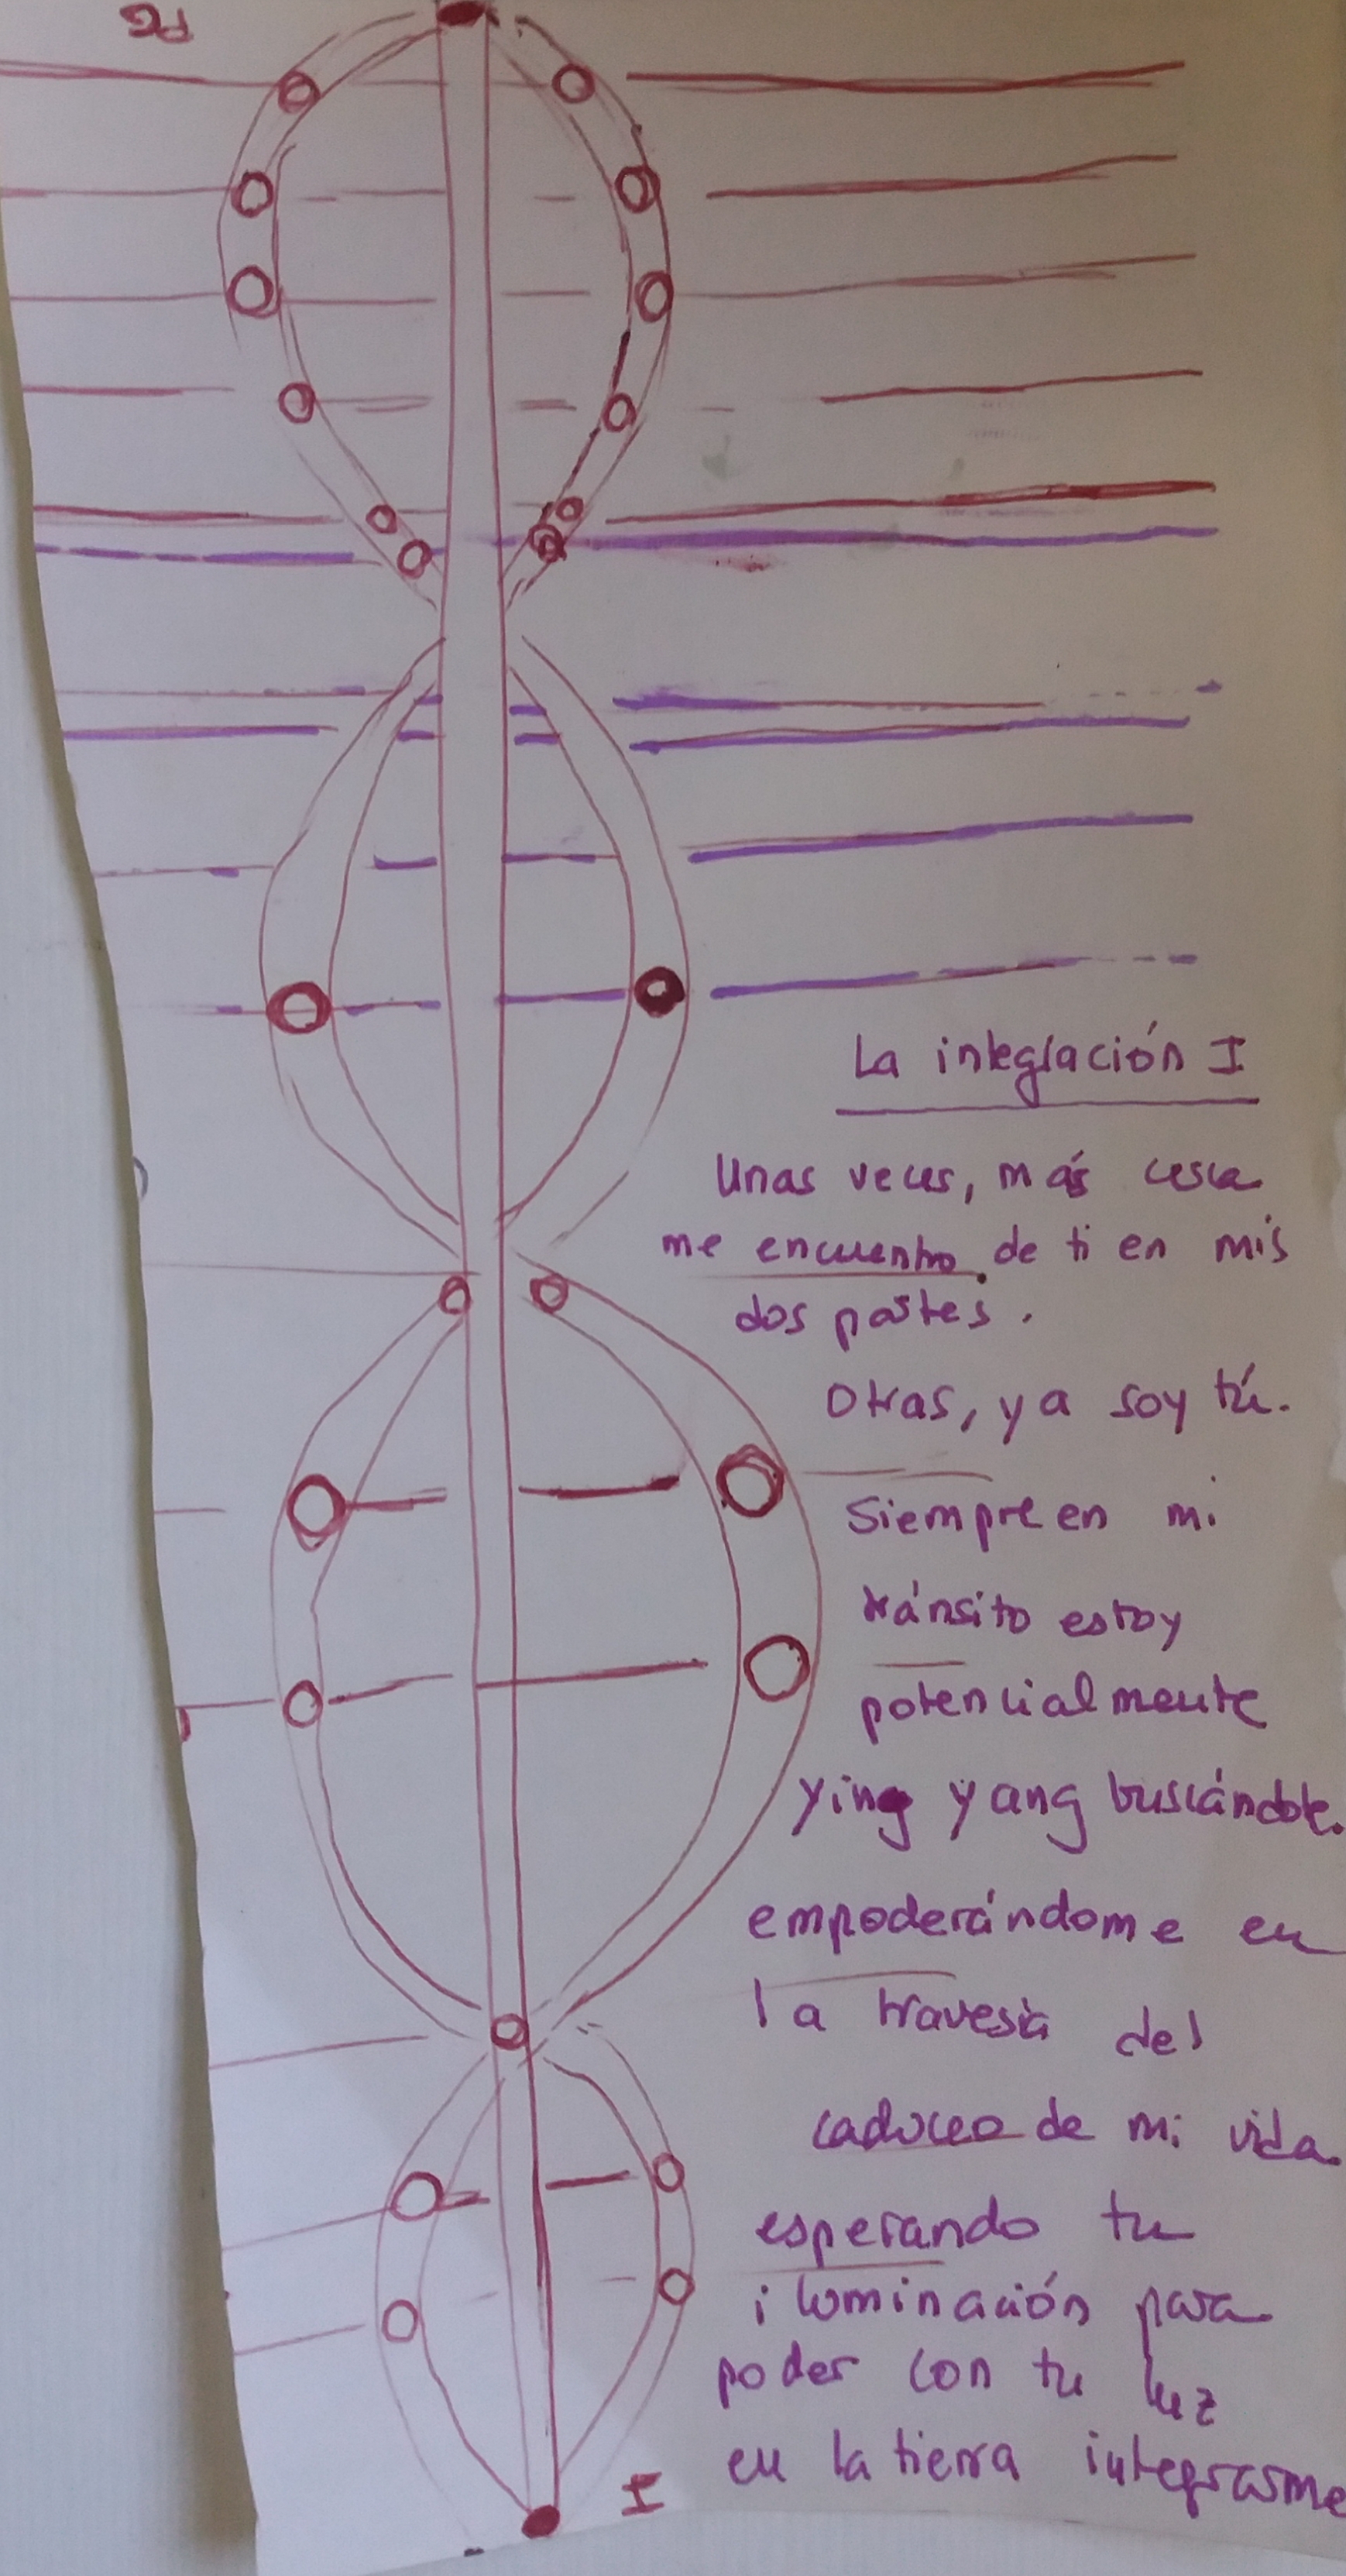 PG
La integración I
Unas veces, más cerca
me encuentro de ti en mis
dos partes.
Otras, ya soy tú.
Siempre en mi
tránsito estoy
potencialmente
Ying yang buscándote.
empoderándome en
la travesía del
caduceo de mi vida
esperando tu
iluminación para
poder con tu luz
en la tierra integrarme
I